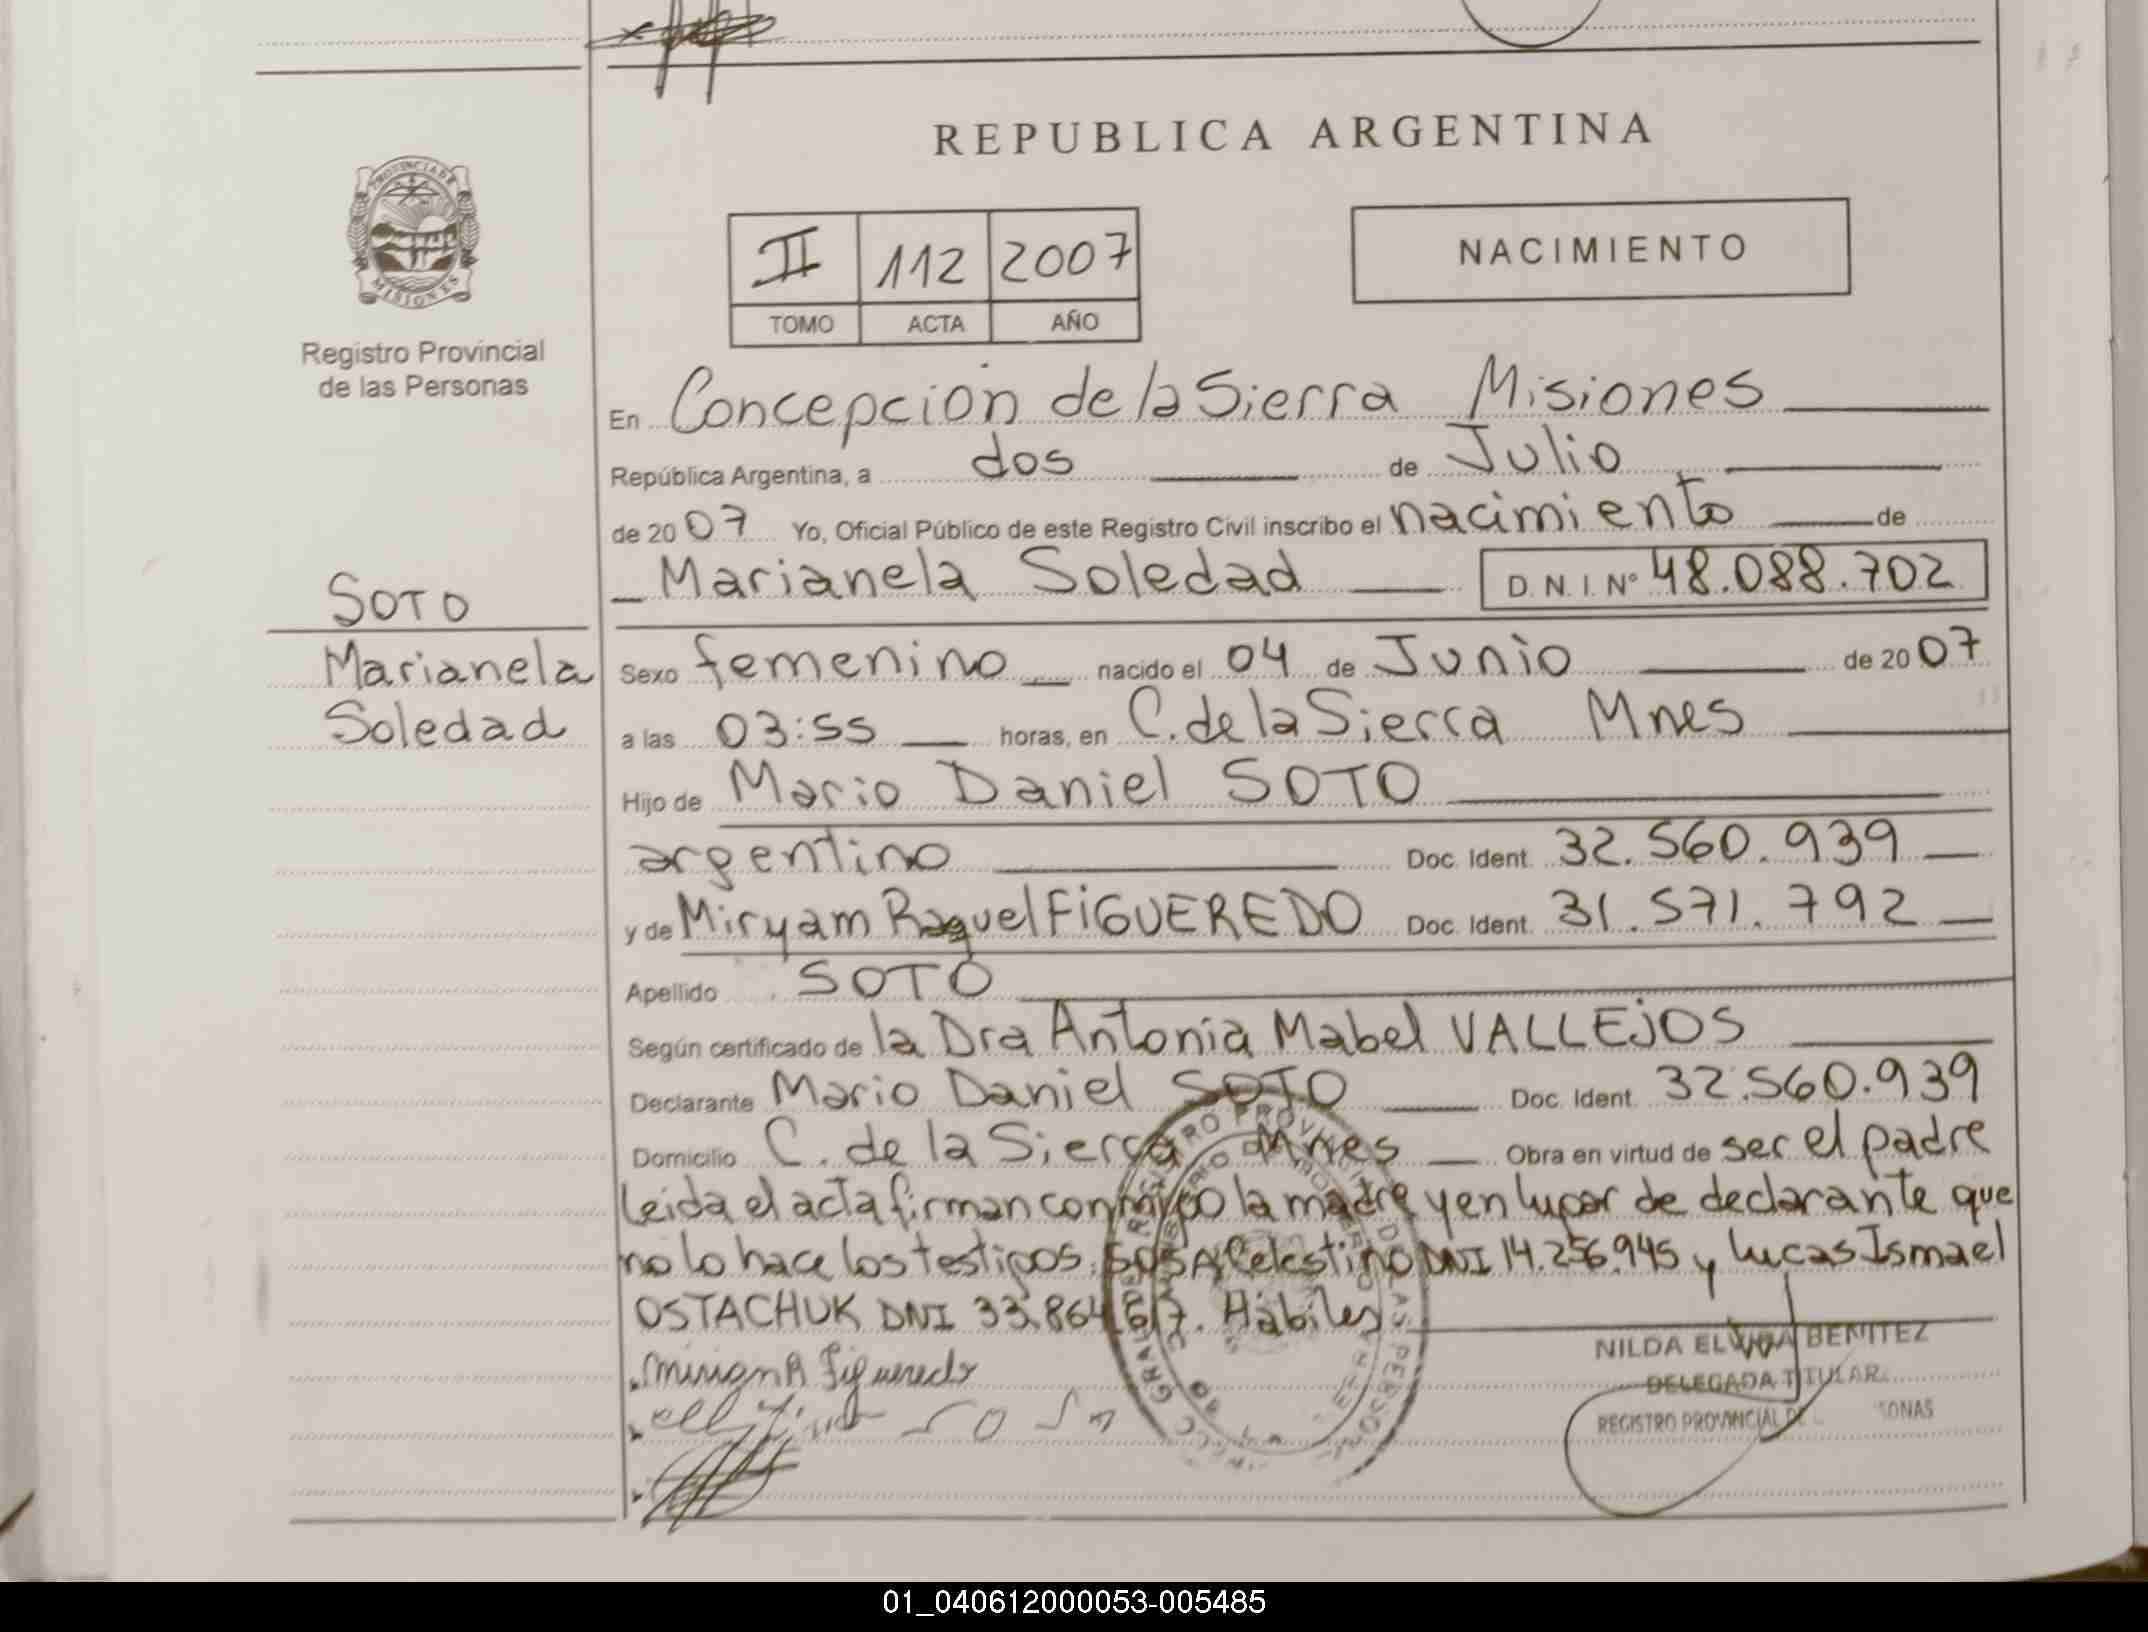 REPUBLICA ARGENTINA
PROVINCIA DE
MISIONES
Registro Provincial
de las Personas
II 112 2007
TOMO ACTA AÑO
NACIMIENTO
En Concepción de la Sierra Misiones
República Argentina, a dos de Julio
de 2007 Yo, Oficial Público de este Registro Civil inscribo el nacimiento de
Marianela Soledad D. N. I. Nº 48.088.702
SOTO
Marianela
Soledad
Sexo femenino nacido el 04 de Junio de 2007
a las 03:55 horas, en C. de la Sierra Mnes
Hijo de Mario Daniel SOTO
argentino Doc. Ident. 32.560.939
y de Miryam Raquel FIGUEREDO Doc. Ident. 31.571.792
Apellido SOTO
Según certificado de la Dra Antonia Mabel VALLEJOS
Declarante Mario Daniel SOTO Doc. Ident. 32.560.939
Domicilio C. de la Sierra Mnes Obra en virtud de ser el padre
leida el acta firman conmigo la madre y en lugar de declarante que
no lo hace los testigos: SOSA Celestino DNI 14.256.945 y Lucas Ismael
OSTACHUK DNI 33.864.617. Hábiles
Figueredo
Sosa
NILDA ELVIRA BENITEZ
DELEGADA TITULAR
REGISTRO PROVINCIAL DE
01_040612000053-005485